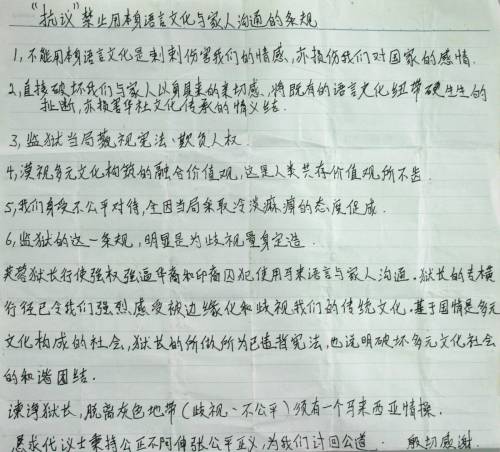 “抗议”禁止用本身语言文化与家人沟通的条规
1，不能用本身语言文化是刺刺伤害我们的情感，亦损伤我们对国家的感情．
2，直接破坏我们与家人以身具来的亲切感，将既有的语言文化纽带硬生生的
扯断，亦损害华社文化传承的情义结．
3，监狱当局藐视宪法、欺负人权．
4，漠视多元文化构筑的融合价值观，这是人类共存价值观所不齿．
5，我们身受不公平对待，全因当局采取冷淡麻痹的态度促成．
6，监狱的这一条规，明显是为歧视量身定造．
芙蓉狱长行使强权，强逼华裔和印裔囚犯使用马来语言与家人沟通．狱长的专横
行径已令我们强烈感受被边缘化和歧视我们的传统文化．基于国情是多元
文化构成的社会，狱长的所做所为已违背宪法，也说明破坏多元文化社会
的和谐团结．
谏诤狱长，脱离灰色地带（歧视、不公平）须有一个马来西亚情操．
恳求代议士秉持公正不阿伸张公平正义，为我们讨回公道． 殷切感谢．